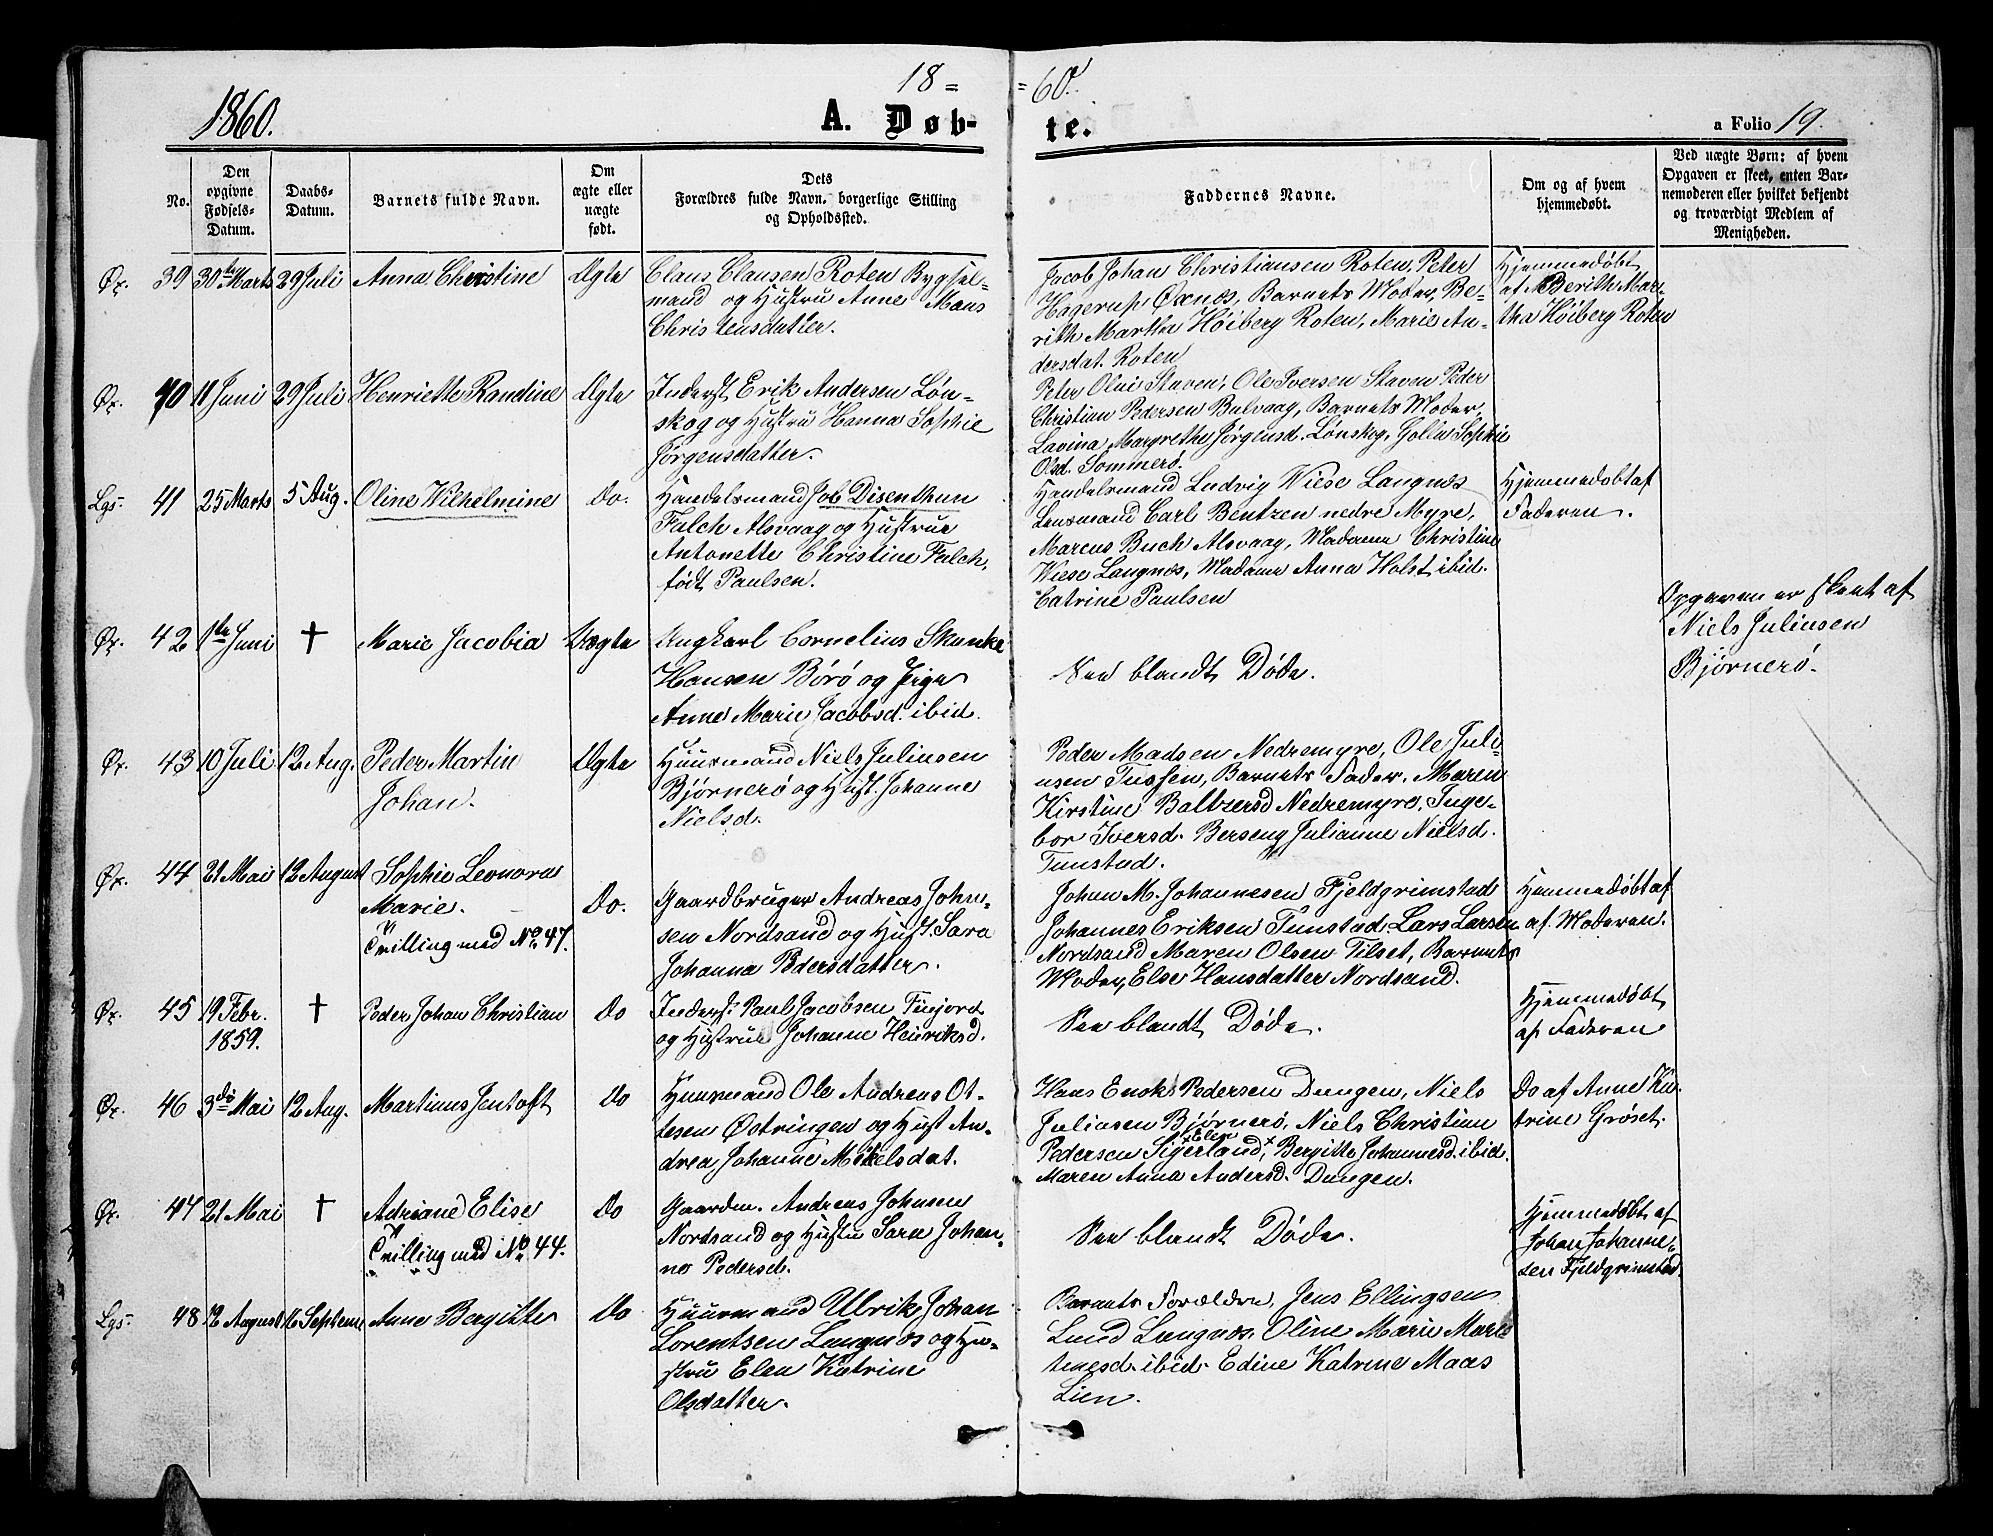 18 = = 60.
1860.
A. Døb- te.
a Folio 19.
No.
Den
opgivne
Fødsels-
Datum.
Daabs-
Datum.
Barnets fulde Navn.
Om
ægte eller
uægte
født.
Dets
Forældres fulde Navn, borgerlige Stilling
og Opholdssted.
Faddernes Navne.
Om og af hvem
hjemmedøbt.
Ved uægte Børn: af hvem
Opgaven er skeet, enten Bar-
nemoderen eller hvilket bekjendt
og troværdigt Medlem af
Menigheden.
Øx. 39 30te Marts 29 Juli Anna Christine Ægte
Claus Clausen Roten Bygsel-
mand og Hustru Anne Mans
Christensdatter.
Jacob Johan Christiansen Roten, Peter
Hagerup Øxnæs, Barnets Moder, Be-
rith Martha Høiberg Roten, Marie An-
dersdat. Roten
Hjemmedøbt
af Berith Mar-
tha Høiberg Roten
Øx. 40 11 Juni 29 Juli Henriette Randine Ægte
Inderst Erik Andersen Løn-
skog og Hustru Hanna Sophie
Jørgensdatter.
Peter Olai Staven, Ole Iversen Staven Peder
Christian Pedersen Bulvaag, Barnets Moder,
Lavina Margrethe Jørgensd. Lønskog, Golla Sophie
Olsd. Sommerø.
Lgs. 41 25 Marts 5 Aug. Oline Wilhelmine Do.
Handelsmand Job Disenthun
Falch Alsvaag og Hustrue
Antonette Christine Falch,
født Paulsen.
Handelsmand Ludvig Wiese Langnæs
Lensmand Carl Bentzen nedre Myre,
Marcus Buch Alsvaag, Madame Christine
Wiese Langnæs, Madame Anna Holst ibid.
Catrine Paulsen
Hjemmedøbt af
Faderen.
Øx. 42 1ste Juni † Marie Jacobia Uægte
Ungkarl Cornelius Skanke
Hansen Børø og Pige
Anne Marie Jacobsd. ibid.
See blandt Døde.
Opgaven er skeet af
Niels Juliusen
Bjørnerø.
Øx. 43 10 Juli 12 Aug. Peder Martin
Johan. Ægte
Huusmand Niels Juliusen
Bjørnerø og Hust. Johanne
Nielsd.
Peder Madsen Nedremyre, Ole Juli-
usen Tussen, Barnets Fader, Maren
Kirstine Baltzersd Nedremyre, Inge-
bor Iversd. Berseng Julianne Nielsd.
Tunstad.
Øx. 44 21 Mai 12 August Sophie Leonora
Marie.
Tvilling med No. 47. Do.
Gaardbruger Andreas John-
sen Nordsand og Hust. Sara
Johanna Pedersdatter.
Johan M. Johannesen Fjeldgrimstad
Johannes Eriksen Tunstad. Lars Larsen
Nordsand Maren Olsen Tilset, Barnets
Moder, Else Hansdatter Nordsand.
Hjemmedøbt af
af Moderen.
Øx. 45 19 Febr.
1859. † Peder Johan Christian Do
Inderst Paul Jacobsen Finjord
og Hustrue Johanne Henriksd.
See blandt Døde.
Hjemmedøbt
af Faderen
Øx. 46 3die Mai 12 Aug. Martinus Jentoft Do
Huusmand Ole Andreas Ot-
tesen Østringen og Hust An-
drea Johanne Mikelsdat.
Hans Enoks Pedersen Dungen, Niels
Juliusen Bjørnerø, Niels Christian
Pedersen Sigerland, × Elen × Bergitte Johannesd. ibid.
Maren Anna Andersd. Dungen.
Do af Anne Ka-
trine Grøset.
Øx. 47 21 Mai † Adriane Elise
Tvilling med No. 44. Do
Gaardm. Andreas Johnsen
Nordsand og Hustru Sara Johan-
ne Pedersd.
See blandt Døde.
Hjemmedøbt af
Johan Johanne-
sen Fjeldgrimstad.
Lgs. 48 12 August 16 Septemr Anne Bergitte Do
Huusmand Ulrik Johan
Lorentsen Langnæs og Hu-
stru Elen Katrine
Olsdatter.
Barnets Forældre, Jens Ellingsen
Lund Langnæs. Oline Marie Mor-
tensd. ibid. Edine Katrine Maas
Lien.